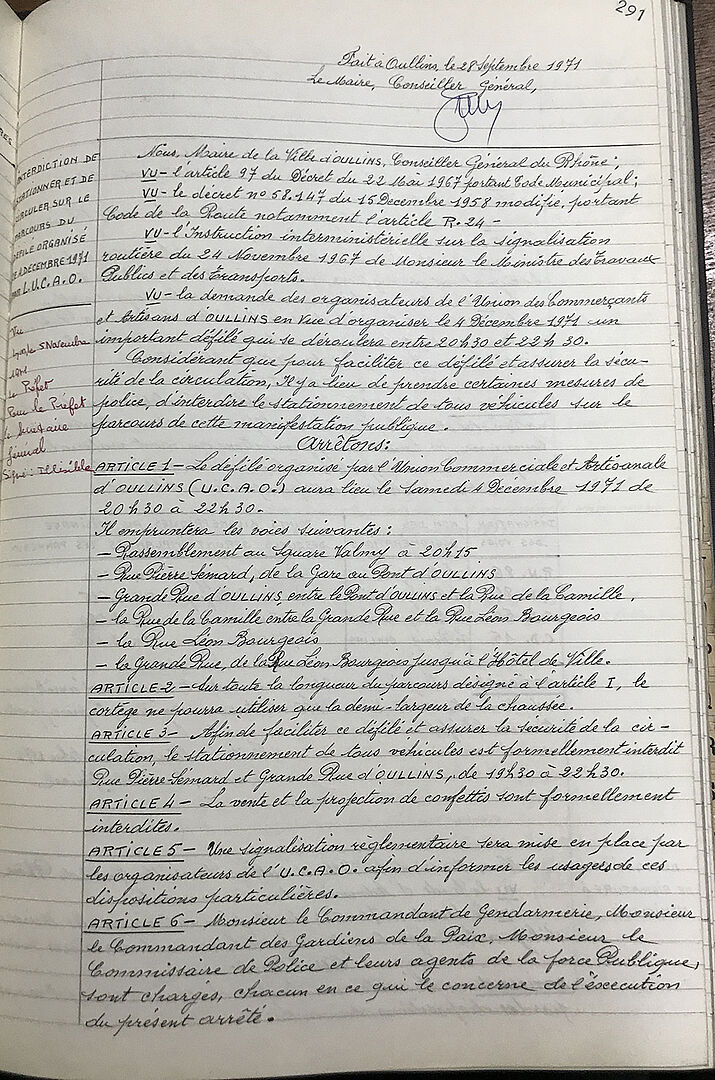 291
Fait à Oullins, le 28 Septembre 1971
Le Maire, Conseiller Général,
INTERDICTION DE
STATIONNER ET DE
CIRCULER SUR LE
PARCOURS DU
DEFILE ORGANISÉ
LE 4 DECEMBRE 1971
PAR L'U.C.A.O.
Vu
5 Novembre
1971
Le Préfet
Pour le Préfet
le Secrétaire
Général
Signé: Illisible
Nous, Maire de la Ville d'OULLINS, Conseiller Général du Rhône;
VU - l'article 97 du Décret du 22 Mai 1967 portant Code Municipal;
VU - le décret n° 58.147 du 15 Decembre 1958 modifié, portant
Code de la Route notamment l'article R.24 -
VU - l'Instruction interministérielle sur la signalisation
routière du 24 Novembre 1967 de Monsieur le Ministre des Travaux
Publics et des Transports.
VU - la demande des organisateurs de l'Union des Commerçants
et Artisans d'OULLINS en vue d'organiser le 4 Décembre 1971 un
important défilé qui se déroulera entre 20h30 et 22h30.
Considérant que pour faciliter ce défilé et assurer la sécu-
rité de la circulation, Il y a lieu de prendre certaines mesures de
police, d'interdire le stationnement de tous véhicules sur le
parcours de cette manifestation publique.
Arrêtons:
ARTICLE 1 - Le défilé organisé par l'Union Commerciale et Artisanale
d'OULLINS (U.C.A.O.) aura lieu le Samedi 4 Décembre 1971 de
20h30 à 22h30.
Il empruntera les voies suivantes:
- Rassemblement au Square Valmy à 20h15
- Rue Pierre Sémard, de la Gare au Pont d'OULLINS
- Grande Rue d'OULLINS, entre le Pont d'OULLINS et la Rue de la Camille,
- la Rue de la Camille entre la Grande Rue et la Rue Léon Bourgeois
- la Rue Léon Bourgeois
- la Grande Rue, de la Rue Léon Bourgeois jusqu'à l'Hôtel de Ville.
ARTICLE 2 - Sur toute la longueur du parcours désigné à l'article I, le
cortège ne pourra utiliser que la demi-largeur de la chaussée.
ARTICLE 3 - Afin de faciliter ce défilé et assurer la sécurité de la cir-
culation, le stationnement de tous véhicules est formellement interdit
Rue Pierre Sémard et Grande Rue d'OULLINS, de 19h30 à 22h30.
ARTICLE 4 - La vente et la projection de confettis sont formellement
interdites.
ARTICLE 5 - Une signalisation règlementaire sera mise en place par
les organisateurs de l'U.C.A.O. afin d'informer les usagers de ces
dispositions particulières.
ARTICLE 6 - Monsieur le Commandant de Gendarmerie, Monsieur
le Commandant des Gardiens de la Paix, Monsieur le
Commissaire de Police et leurs agents de la force Publique,
sont chargés, chacun en ce qui le concerne de l'éxcecution
du présent arrêté.